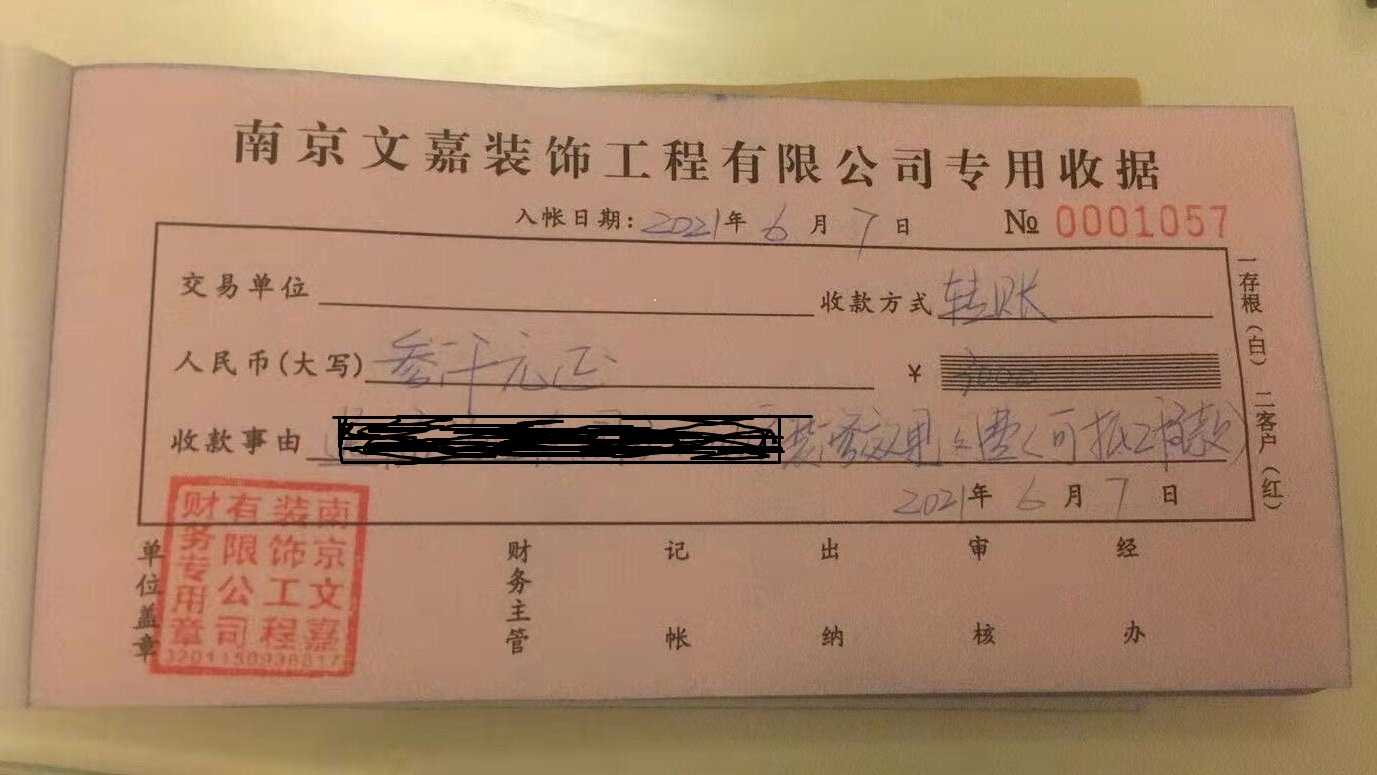 南京文嘉装饰工程有限公司专用收据
入帐日期: 2021年 6 月 7 日 № 0001057
交易单位 收款方式 转账
人民币(大写) 叁仟元正 ¥ 3000
收款事由 装修效果 费(可抵工程款)
2021年 6 月 7 日
一存根(白) 二客户(红)
单位盖章 财务主管 记帐 出纳 审核 经办
南京文嘉
装饰工程
有限公司
财务专用章